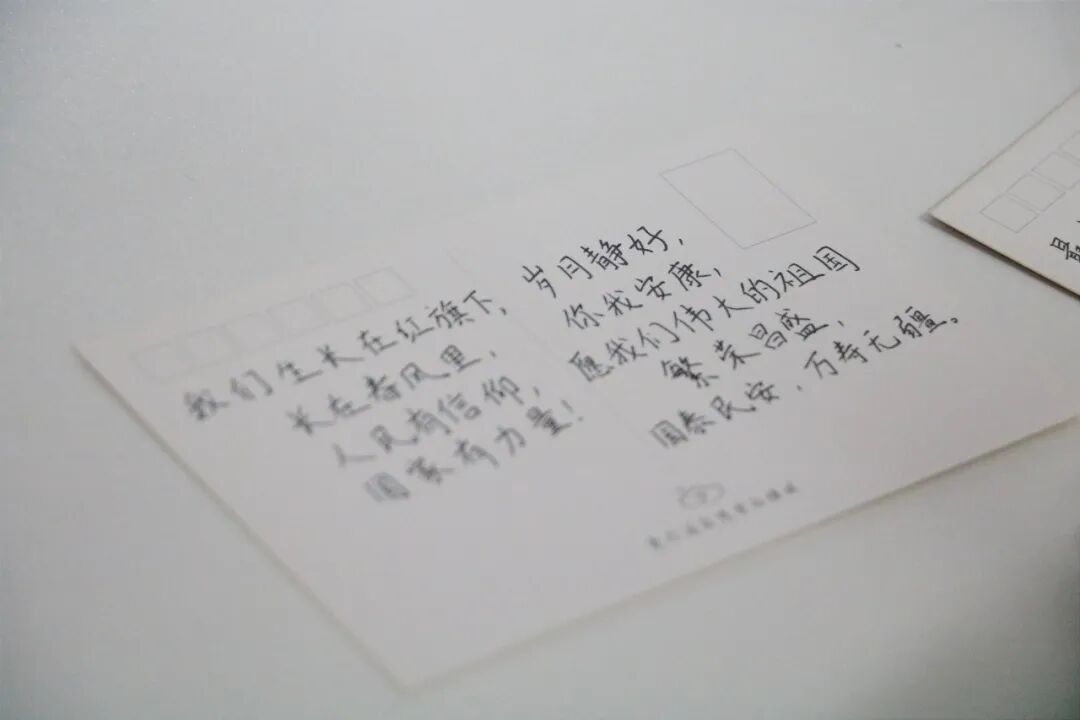 我们生长在红旗下，
长在春风里，
人民有信仰，
国家有力量！
岁月静好，
你我安康，
愿我们伟大的祖国
繁荣昌盛，
国泰民安，万寿无疆。
最